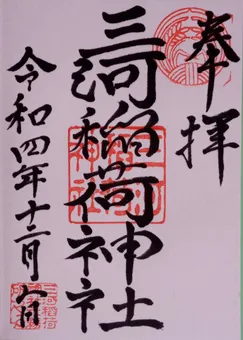 奉拝
三河稲荷神社
令和四年十二月八日